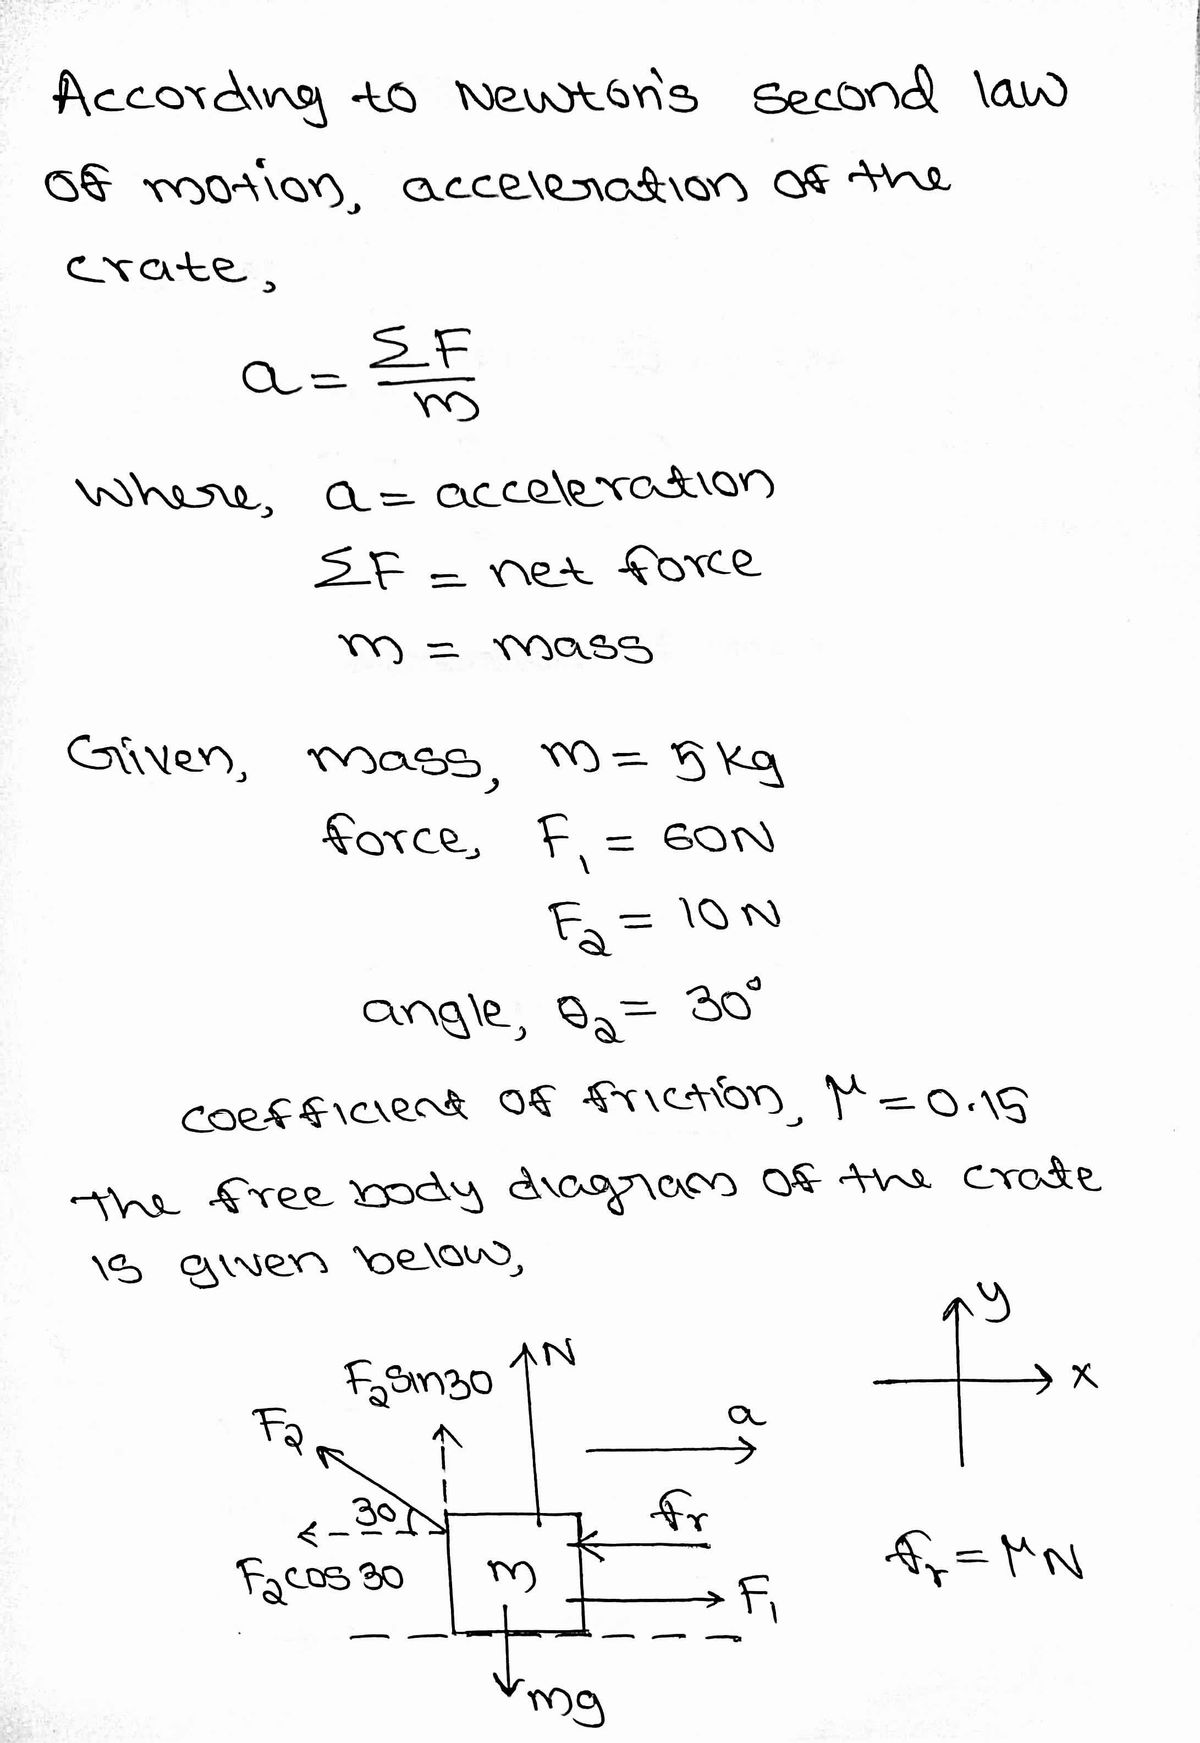 According to Newton's second law
of motion, acceleration of the
crate,
a = ΣF/m
where, a = acceleration
ΣF = net force
m = mass
Given, mass, m = 5 kg
force, F₁ = 60N
F₂ = 10 N
angle, θ₂ = 30°
coefficient of friction, μ = 0.15
The free body diagram of the crate
is given below,
y
x
N
F₂ sin30
F₂
a
30
fr
F₂ cos 30
m
F₁
fr = μN
mg